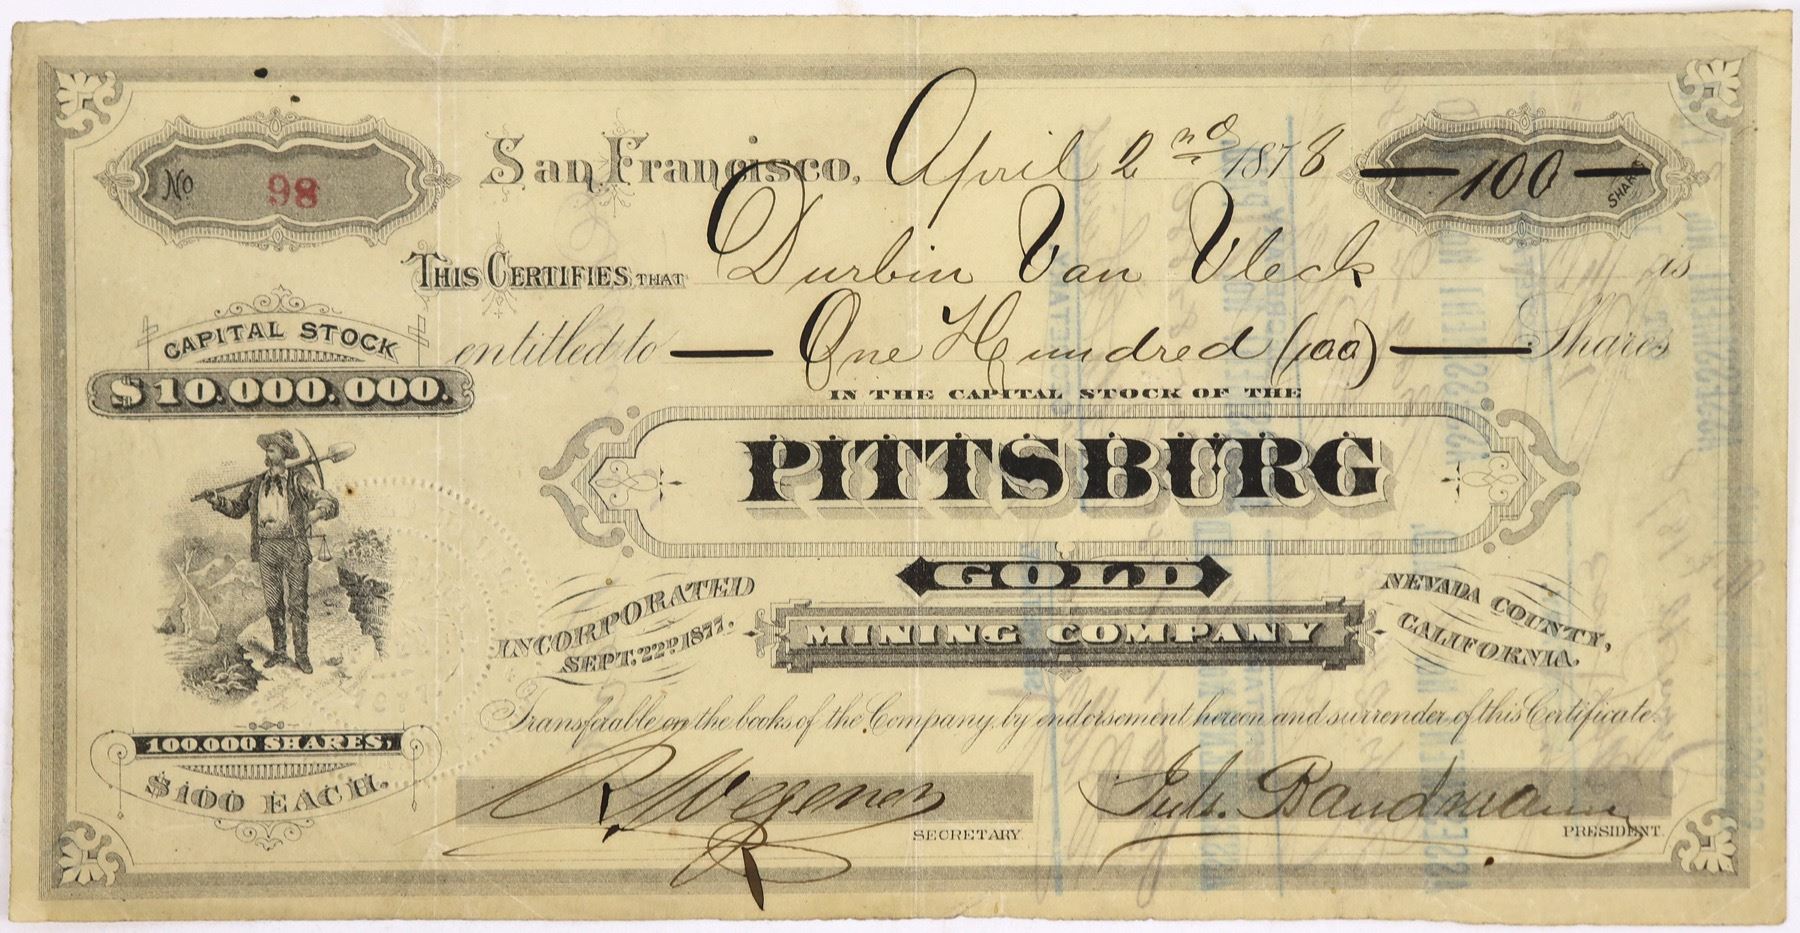 No 98
San Francisco, April 2nd 1878
100 SHARES
THIS CERTIFIES THAT Durbin Van Vleck is
entitled to One Hundred (100) Shares
IN THE CAPITAL STOCK OF THE
CAPITAL STOCK
$10.000.000.
PITTSBURG
GOLD
MINING COMPANY
INCORPORATED
SEPT. 22D 1877.
NEVADA COUNTY,
CALIFORNIA.
Transferable on the books of the Company, by endorsement hereon and surrender of this Certificate.
100.000 SHARES,
$100 EACH.
R. Wegener
SECRETARY
Juls. Bandmann
PRESIDENT.